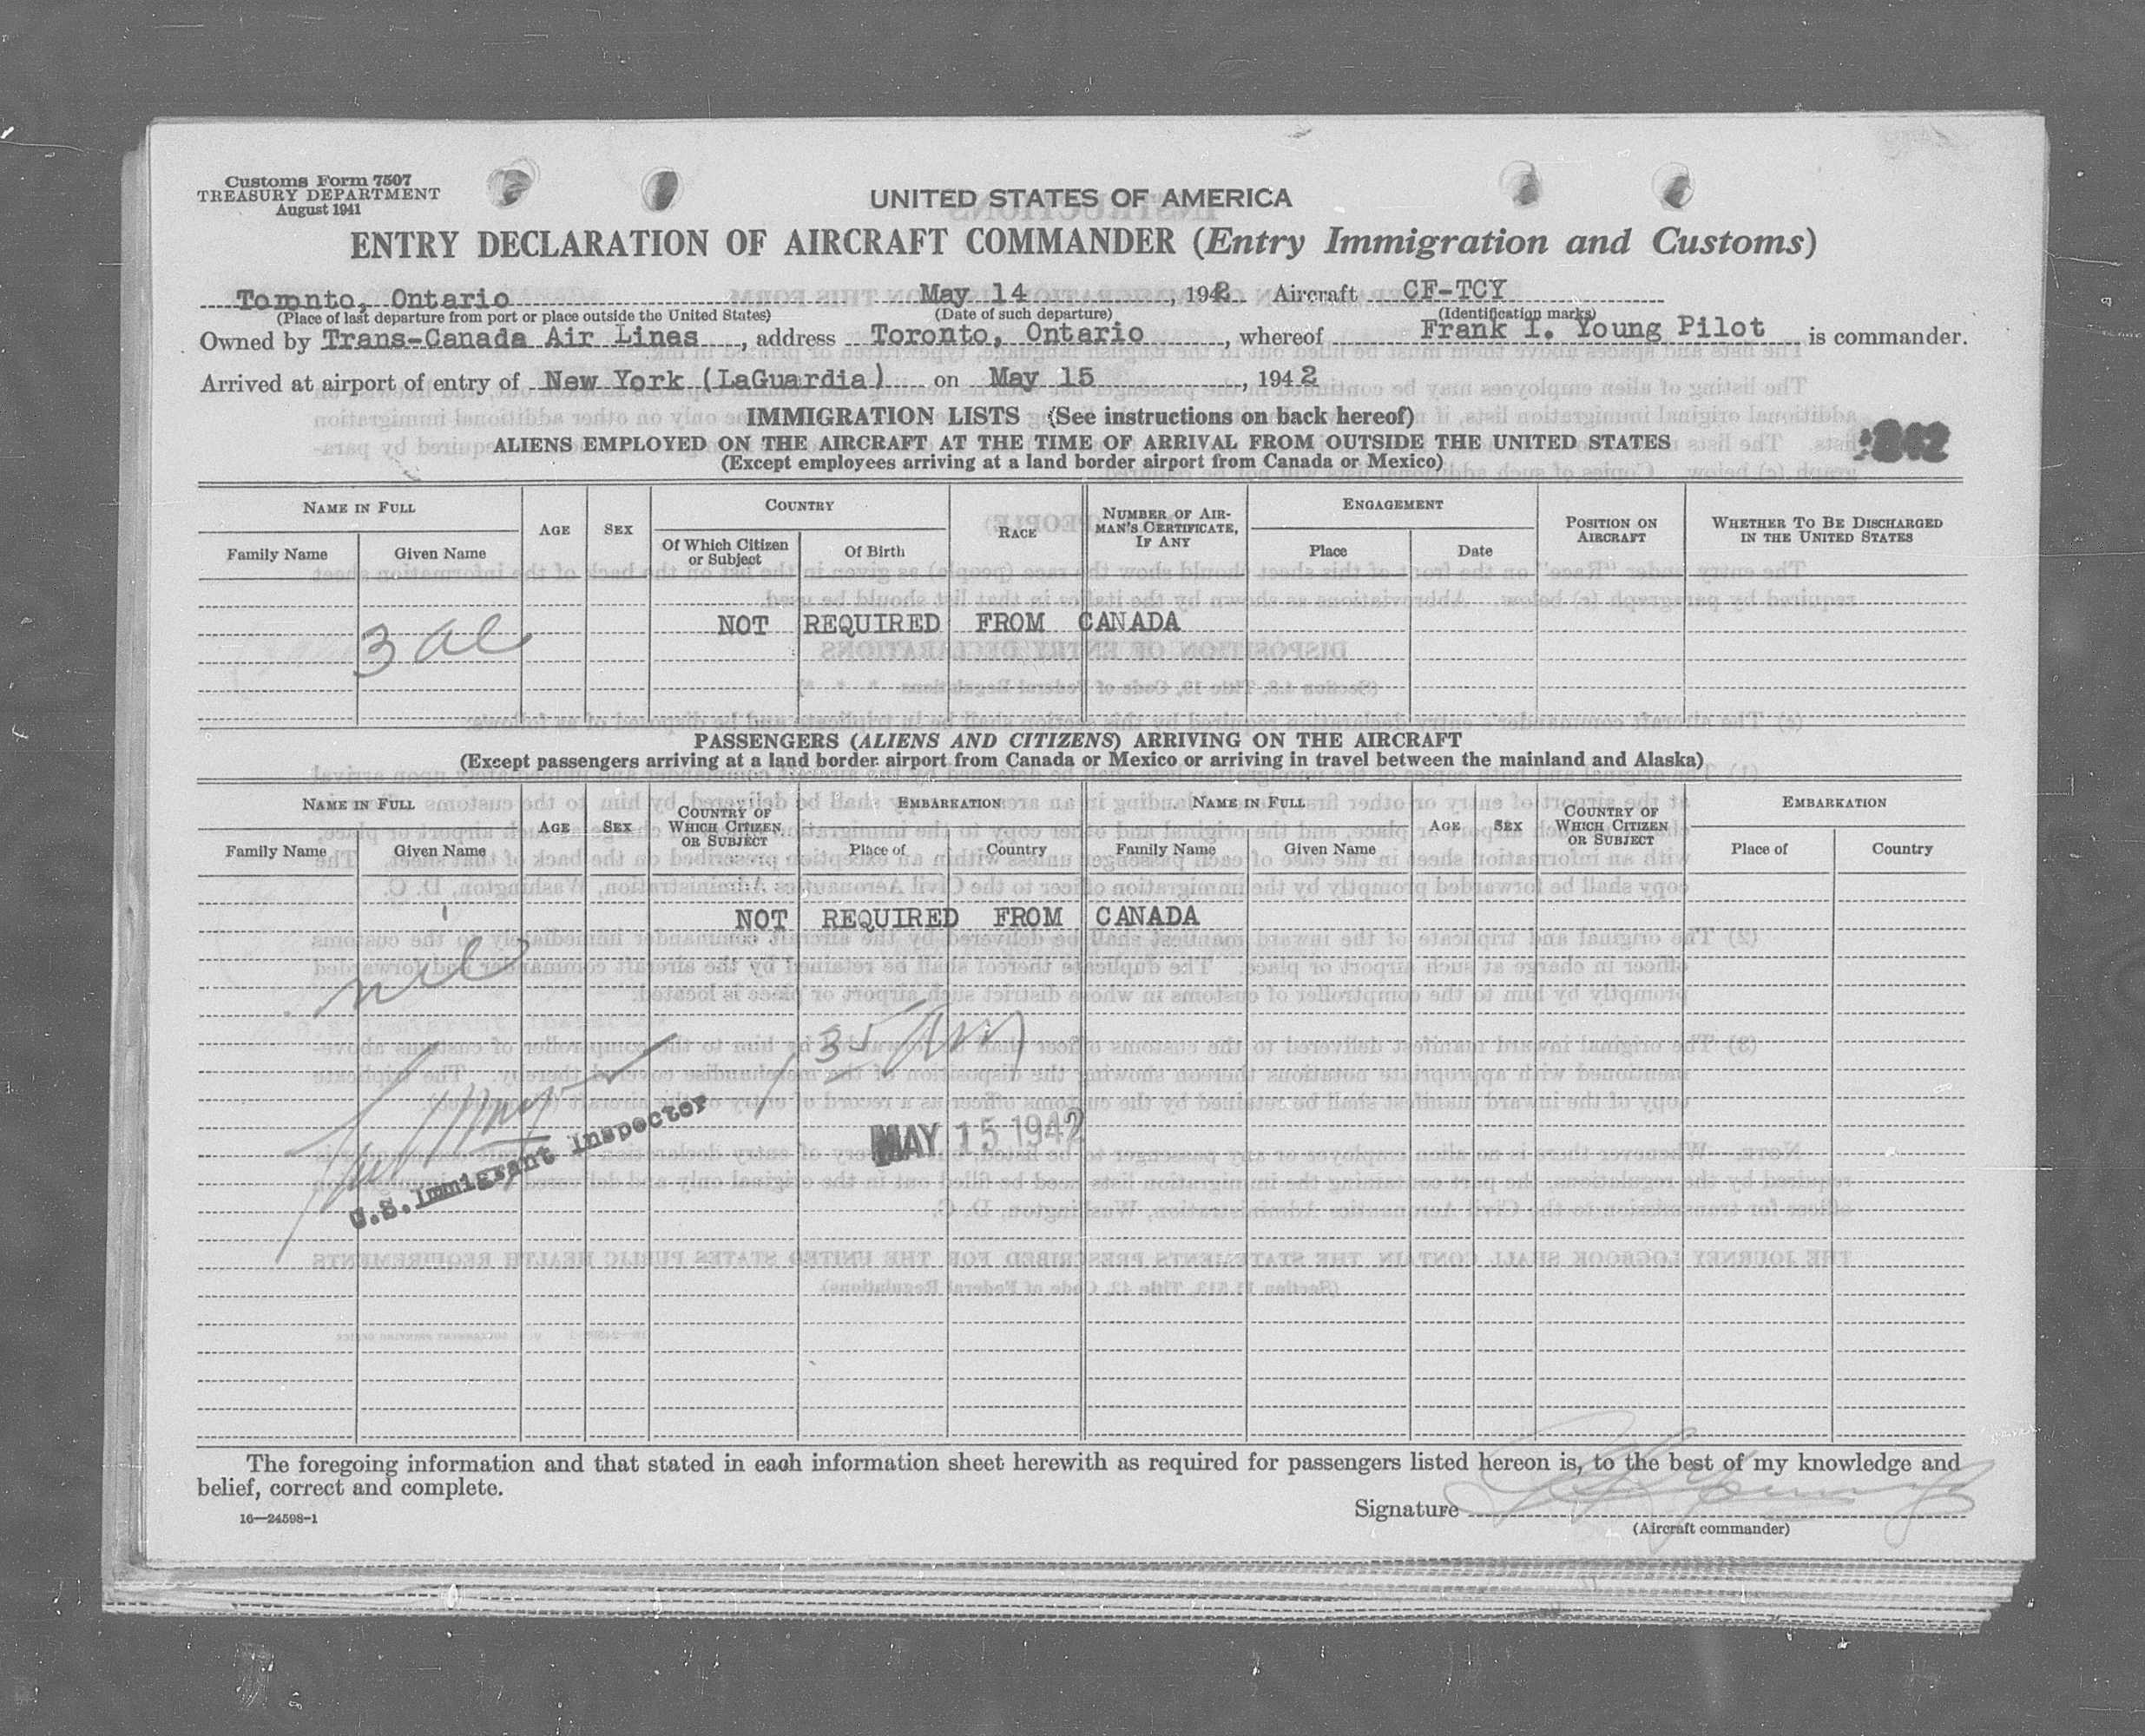 Customs Form 7507
TREASURY DEPARTMENT
August 1941
UNITED STATES OF AMERICA
ENTRY DECLARATION OF AIRCRAFT COMMANDER (Entry Immigration and Customs)
Toronto, Ontario May 14, 1942 Aircraft CF-TCY
(Place of last departure from port or place outside the United States) (Date of such departure) (Identification marks)
Owned by Trans-Canada Air Lines, address Toronto, Ontario, whereof Frank I. Young Pilot is commander.
Arrived at airport of entry of New York (LaGuardia) on May 15, 1942
IMMIGRATION LISTS (See instructions on back hereof)
ALIENS EMPLOYED ON THE AIRCRAFT AT THE TIME OF ARRIVAL FROM OUTSIDE THE UNITED STATES
(Except employees arriving at a land border airport from Canada or Mexico)
NAME IN FULL AGE SEX COUNTRY RACE NUMBER OF AIRMAN'S CERTIFICATE, IF ANY ENGAGEMENT POSITION ON AIRCRAFT WHETHER TO BE DISCHARGED IN THE UNITED STATES
Family Name Given Name Of Which Citizen or Subject Of Birth Place Date
NOT REQUIRED FROM CANADA
3
PASSENGERS (ALIENS AND CITIZENS) ARRIVING ON THE AIRCRAFT
(Except passengers arriving at a land border airport from Canada or Mexico or arriving in travel between the mainland and Alaska)
NAME IN FULL AGE SEX COUNTRY OF WHICH CITIZEN OR SUBJECT EMBARKATION NAME IN FULL AGE SEX COUNTRY OF WHICH CITIZEN OR SUBJECT EMBARKATION
Family Name Given Name Place of Country Family Name Given Name Place of Country
NOT REQUIRED FROM CANADA
nil
U.S. Immigrant Inspector
MAY 15 1942
The foregoing information and that stated in each information sheet herewith as required for passengers listed hereon is, to the best of my knowledge and
belief, correct and complete.
Signature
(Aircraft commander)
16—24598-1